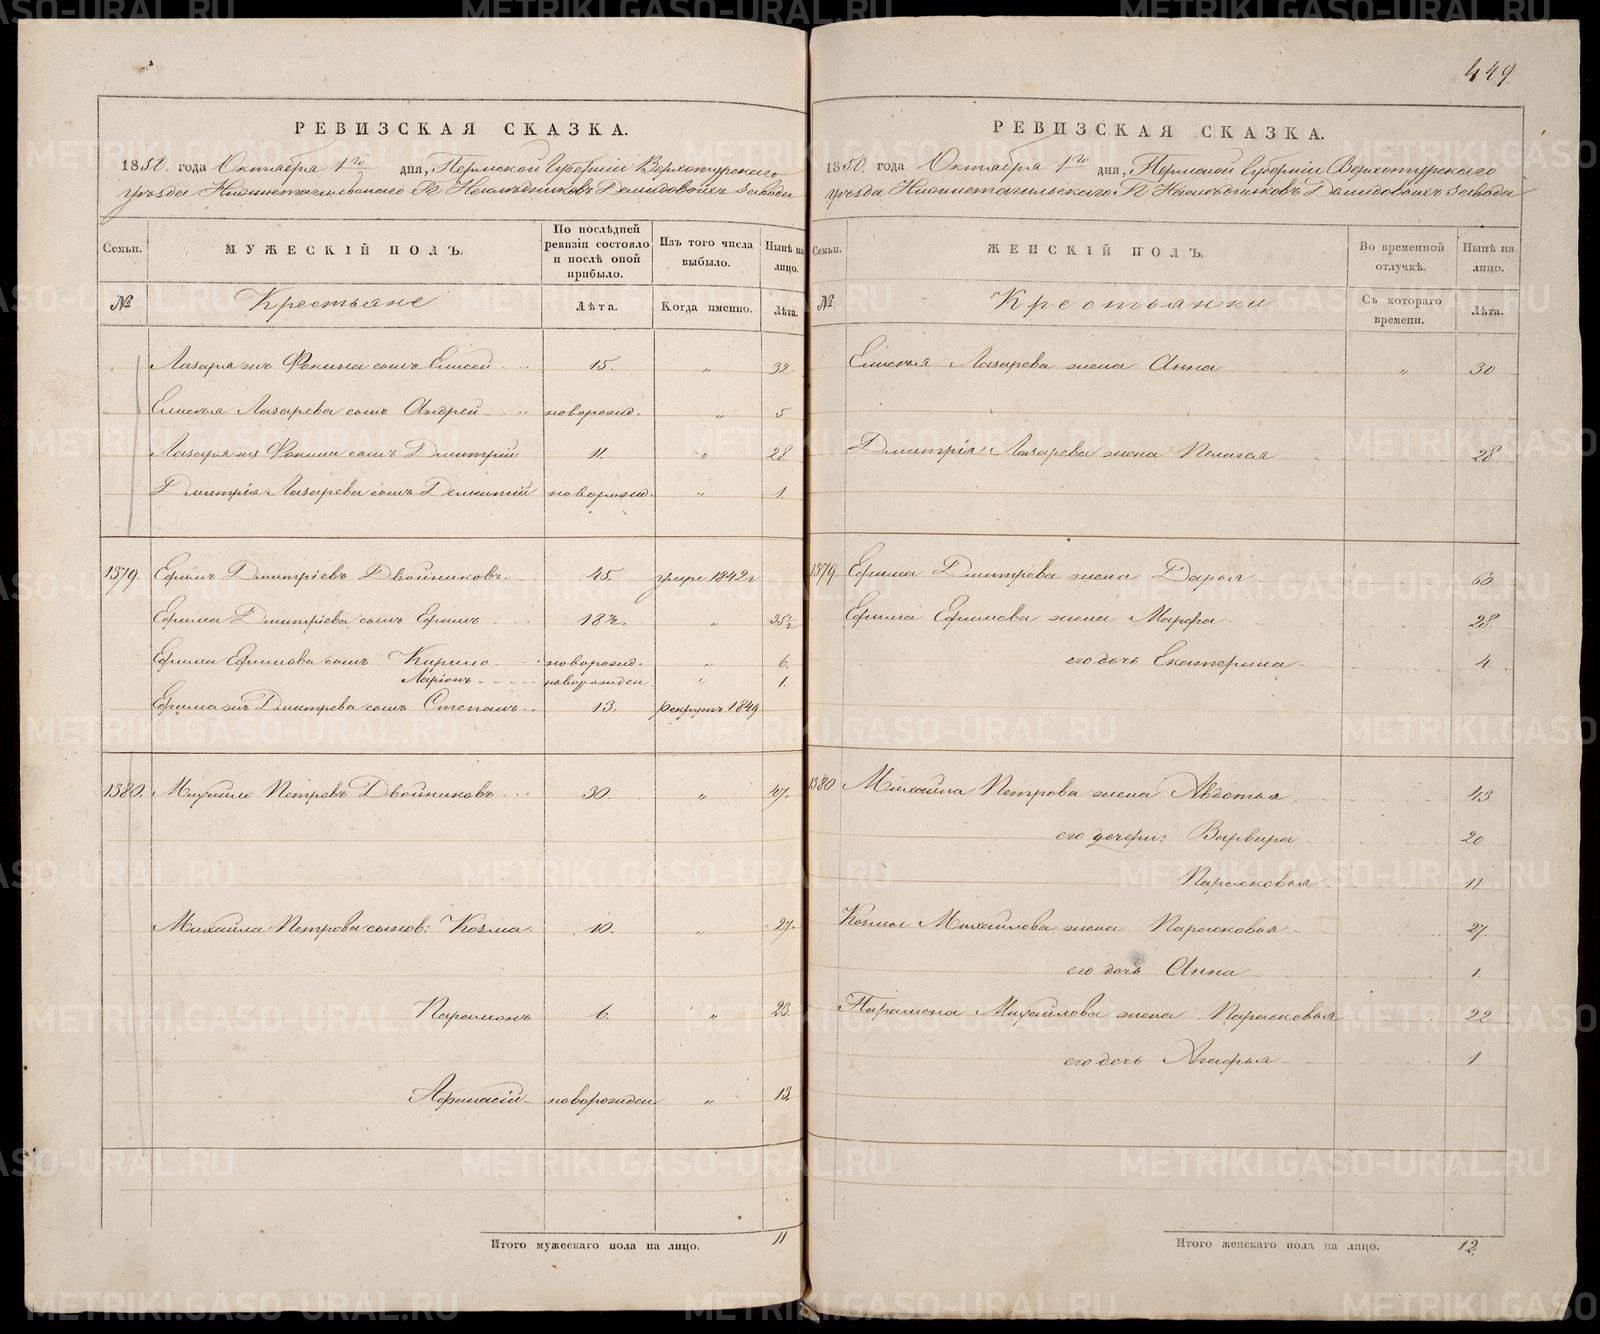 449.
РЕВИЗСКАЯ СКАЗКА.
1850. года Октября 1го дня, Пермской Губерніи Верхотурскаго
уѣзда Нижнетагильскаго Гг. Наслѣдниковъ Демидовыхъ Завода
Семьи. МУЖЕСКІЙ ПОЛЪ. По послѣдней ревизіи состояло и послѣ оной прибыло. Изъ того числа выбыло. Нынѣ на лицо.
№ Крестьяне Лѣта. Когда именно. Лѣта.
Лазаря жъ Фокина сынъ Елисей 15. " 32
Елисея Лазарева сынъ Андрей новорожд. " 5
Лазаря жъ Фокина сынъ Дмитрій 11. " 28
Дмитрія Лазарева сынъ новорожд. " 1.
1379. Ефимъ Дмитріевъ Двойниковъ 45. умре 1842 г
Ефима Дмитріева сынъ Ефимъ 18½. " 35½
Ефима Ефимова сынъ Кирило новорожд. " 6.
Ларіонъ новорожден " 1.
Ефима жъ Дмитрева сынъ Степанъ 13. рекрутъ 1849
1380. Михайло Петровъ Двойниковъ 30. " 47.
Михайла Петрова сынов: Козма 10. " 27.
Парамонъ 6. " 23.
Афанасій новорожден " 13.
Итого мужескаго пола на лицо. 11
РЕВИЗСКАЯ СКАЗКА.
1850. года Октября 1го дня, Пермской Губерніи Верхотурскаго
уѣзда Нижнетагильскаго Гг Наслѣдниковъ Демидовыхъ Завода
Семьи. ЖЕНСКІЙ ПОЛЪ. Во временной отлучкѣ. Нынѣ на лицо.
№ Крестьянки Съ котораго времени. Лѣта.
Елисея Лазарева жена Анна " 30
Дмитрія Лазарева жена Пелагея 28
1379 Ефима Дмитрева жена Дарья 60
Ефима Ефимова жена Марфа 28
его дочь Екатерина 4
1380 Михайла Петрова жена Авдотья 43
его дочери: Варвара 20
Парасковья 11
Козмы Михайлова жена Парасковья 27
его дочь Анна 1.
Парамона Михайлова жена Парасковья 22
его дочь Агафья 1
Итого женскаго пола на лицо. 12.
METRIKI.GASO-URAL.RU